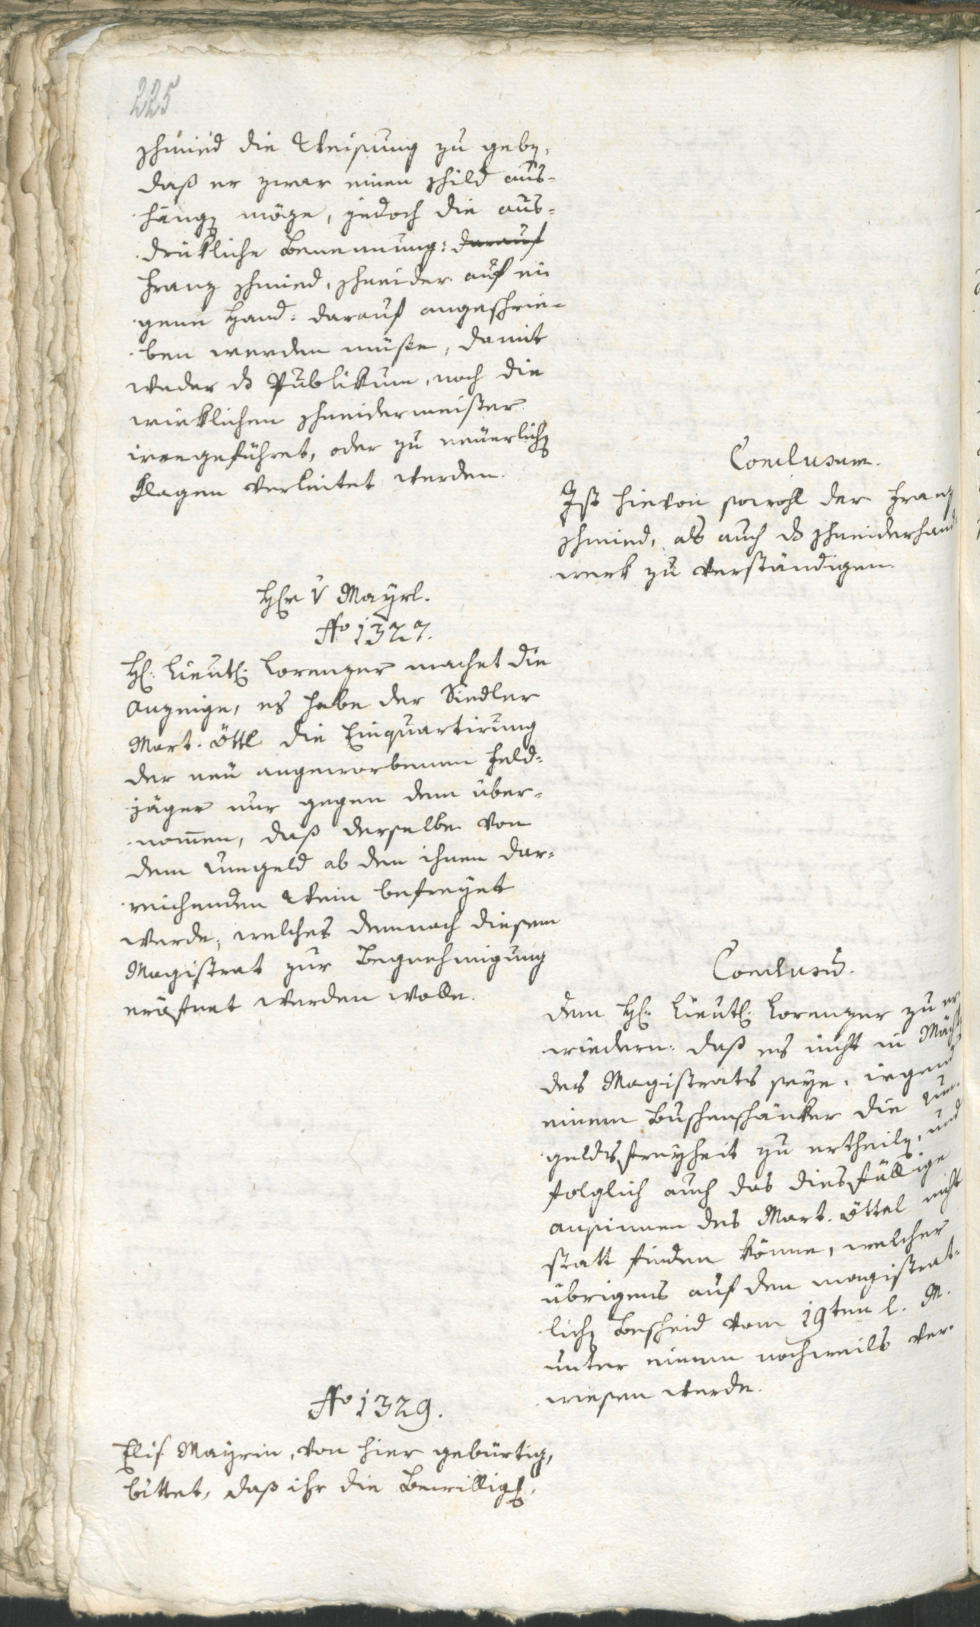 225
Schmied die Weisung zu geben,
daß er zwar einen Schild aus-
hängen möge, jedoch die aus-
drükliche Benennung: darauf
Franz Schmied, Schneider auf ei
gene Hand: darauf angeschrie-
ben werden müße, damit
weder das Publikum, noch die
wirklichen Schneidermeister
irregeführet, oder zu neuerlichen
Klagen verleitet werden.
Conclusum.
Ist hievon sowohl der Franz
Schmied, als auch das Schneiderhand
werk zu verständigen.
Herr v Mayrl.
No 1327.
H: Lieut: Lorenzer machet die
Anzeige, es habe der Siedler
Mart. Öttl die Einquartirung
der neu angeworbenen Feld-
jäger nur gegen dem über-
nommen, daß derselbe von
dem Umgeld ab den ihnen dar-
reichenden Wein befreyet
werde, welches demnach diesem
Magistrat zur Begnehmigung
eröfnet werden wolle.
Conclusum.
Dem H: Lieut: Lorenzer zu er
wiedern: daß es nicht in Macht
des Magistrats seye, irgend
einem Buschenschänker die Um-
geldsfreyheit zu ertheilen, und
folglich auch das diesfällige
ansinnen des Mart. Öttel nicht
statt finden könne, welcher
übrigens auf den magistrat-
lichen Bescheid vom 19ten l. M.
unter einem nochmals ver-
wiesen werde.
No 1329.
Elis. Mayrin, von hier gebürtig,
bittet, daß ihr die Bewillig: